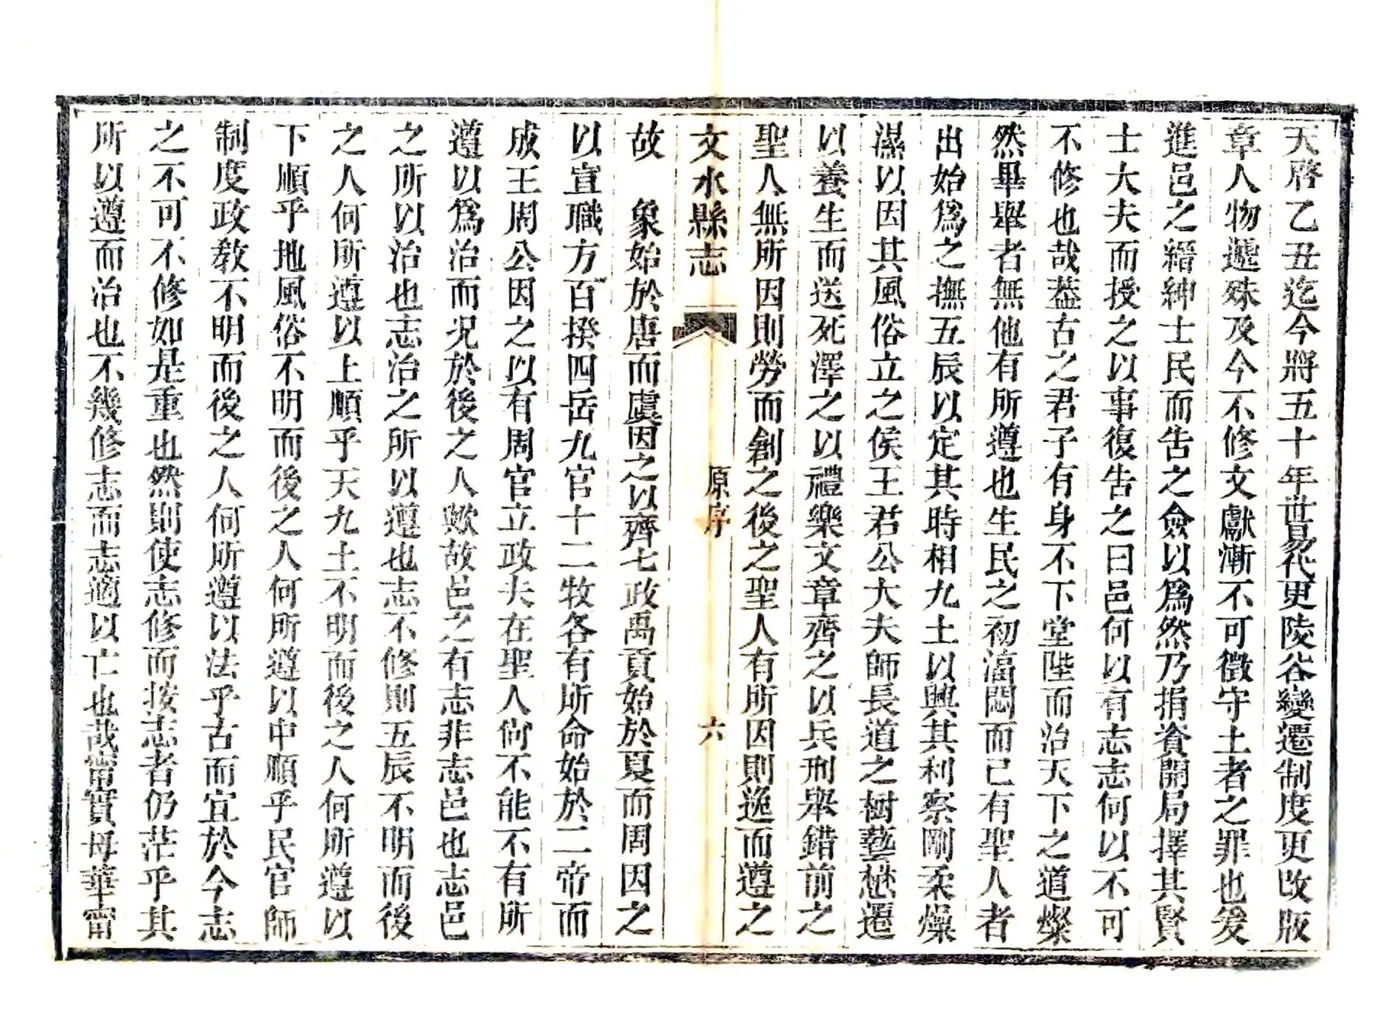 天啓乙丑迄今將五十年世易代更陵谷變遷制度更改版
章人物遞殊及今不修文獻漸不可徵守土者之罪也爰
進邑之縉紳士民而告之僉以爲然乃捐資開局擇其賢
士大夫而授之以事復告之曰邑何以有志志何以不可
不修也哉蓋古之君子有身不下堂陛而治天下之道燦
然畢舉者無他有所遵也生民之初渾悶而已有聖人者
出始爲之撫五辰以定其時相九土以興其利察剛柔燥
濕以因其風俗立之侯王君公大夫師長道之樹藝懋遷
以養生而送死澤之以禮樂文章齊之以兵刑舉錯前之
聖人無所因則勞而創之後之聖人有所因則逸而遵之
文水縣志
原序
六
故　象始於唐而虞因之以齊七政禹貢始於夏而周因之
以宣職方百揆四岳九官十二牧各有所命始於二帝而
成王周公因之以有周官立政夫在聖人尙不能不有所
遵以爲治而况於後之人歟故邑之有志非志邑也志邑
之所以治也志治之所以遵也志不修則五辰不明而後
之人何所遵以上順乎天九土不明而後之人何所遵以
下順乎地風俗不明而後之人何所遵以中順乎民官師
制度政教不明而後之人何所遵以法乎古而宜於今志
之不可不修如是重也然則使志修而按志者仍茫乎其
所以遵而治也不幾修志而志適以亡也哉甯實毋華甯